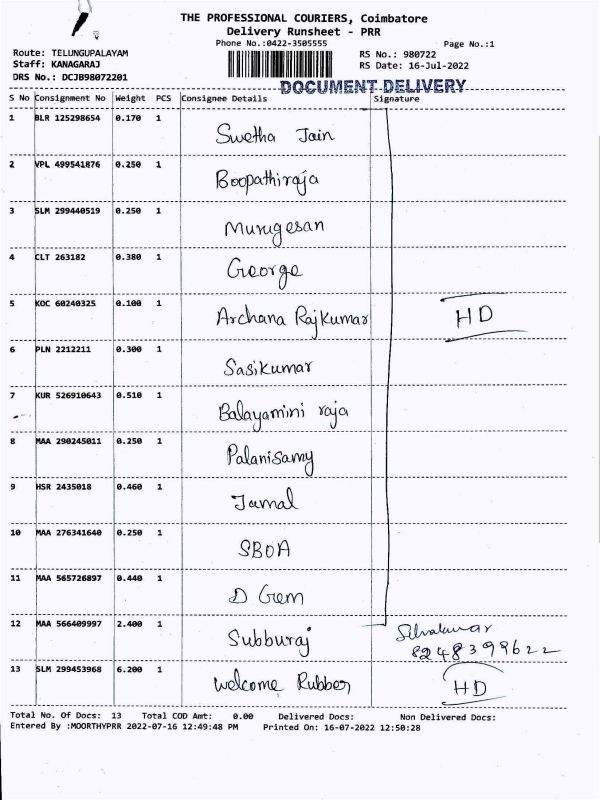 THE PROFESSIONAL COURIERS, Coimbatore
Delivery Runsheet - PRR
Phone No.:0422-3505555 Page No.:1
Route: TELUNGUPALAYAM RS No.: 980722
Staff: KANAGARAJ RS Date: 16-Jul-2022
DRS No.: DCJB98072201
DOCUMENT DELIVERY
S No Consignment No Weight PCS Consignee Details Signature
1 BLR 125298654 0.170 1 Swetha Jain
2 VPL 499541876 0.250 1 Boopathiraja
3 SLM 299440519 0.250 1 Murugesan
4 CLT 263182 0.380 1 George
5 KOC 60240325 0.100 1 Archana RajKumar HD
6 PLN 2212211 0.300 1 Sasikumar
7 KUR 526910643 0.510 1 Balayamini raja
8 MAA 290245011 0.250 1 Palanisamy
9 HSR 2435018 0.460 1 Jamal
10 MAA 276341640 0.250 1 SBOA
11 MAA 565726897 0.440 1 D Gem
12 MAA 566409997 2.400 1 Subburaj
8248399622
13 SLM 299453968 6.200 1 Welcome Rubber HD
Total No. Of Docs: 13 Total COD Amt: 0.00 Delivered Docs: Non Delivered Docs:
Entered By :MOORTHYPRR 2022-07-16 12:49:48 PM Printed On: 16-07-2022 12:50:28